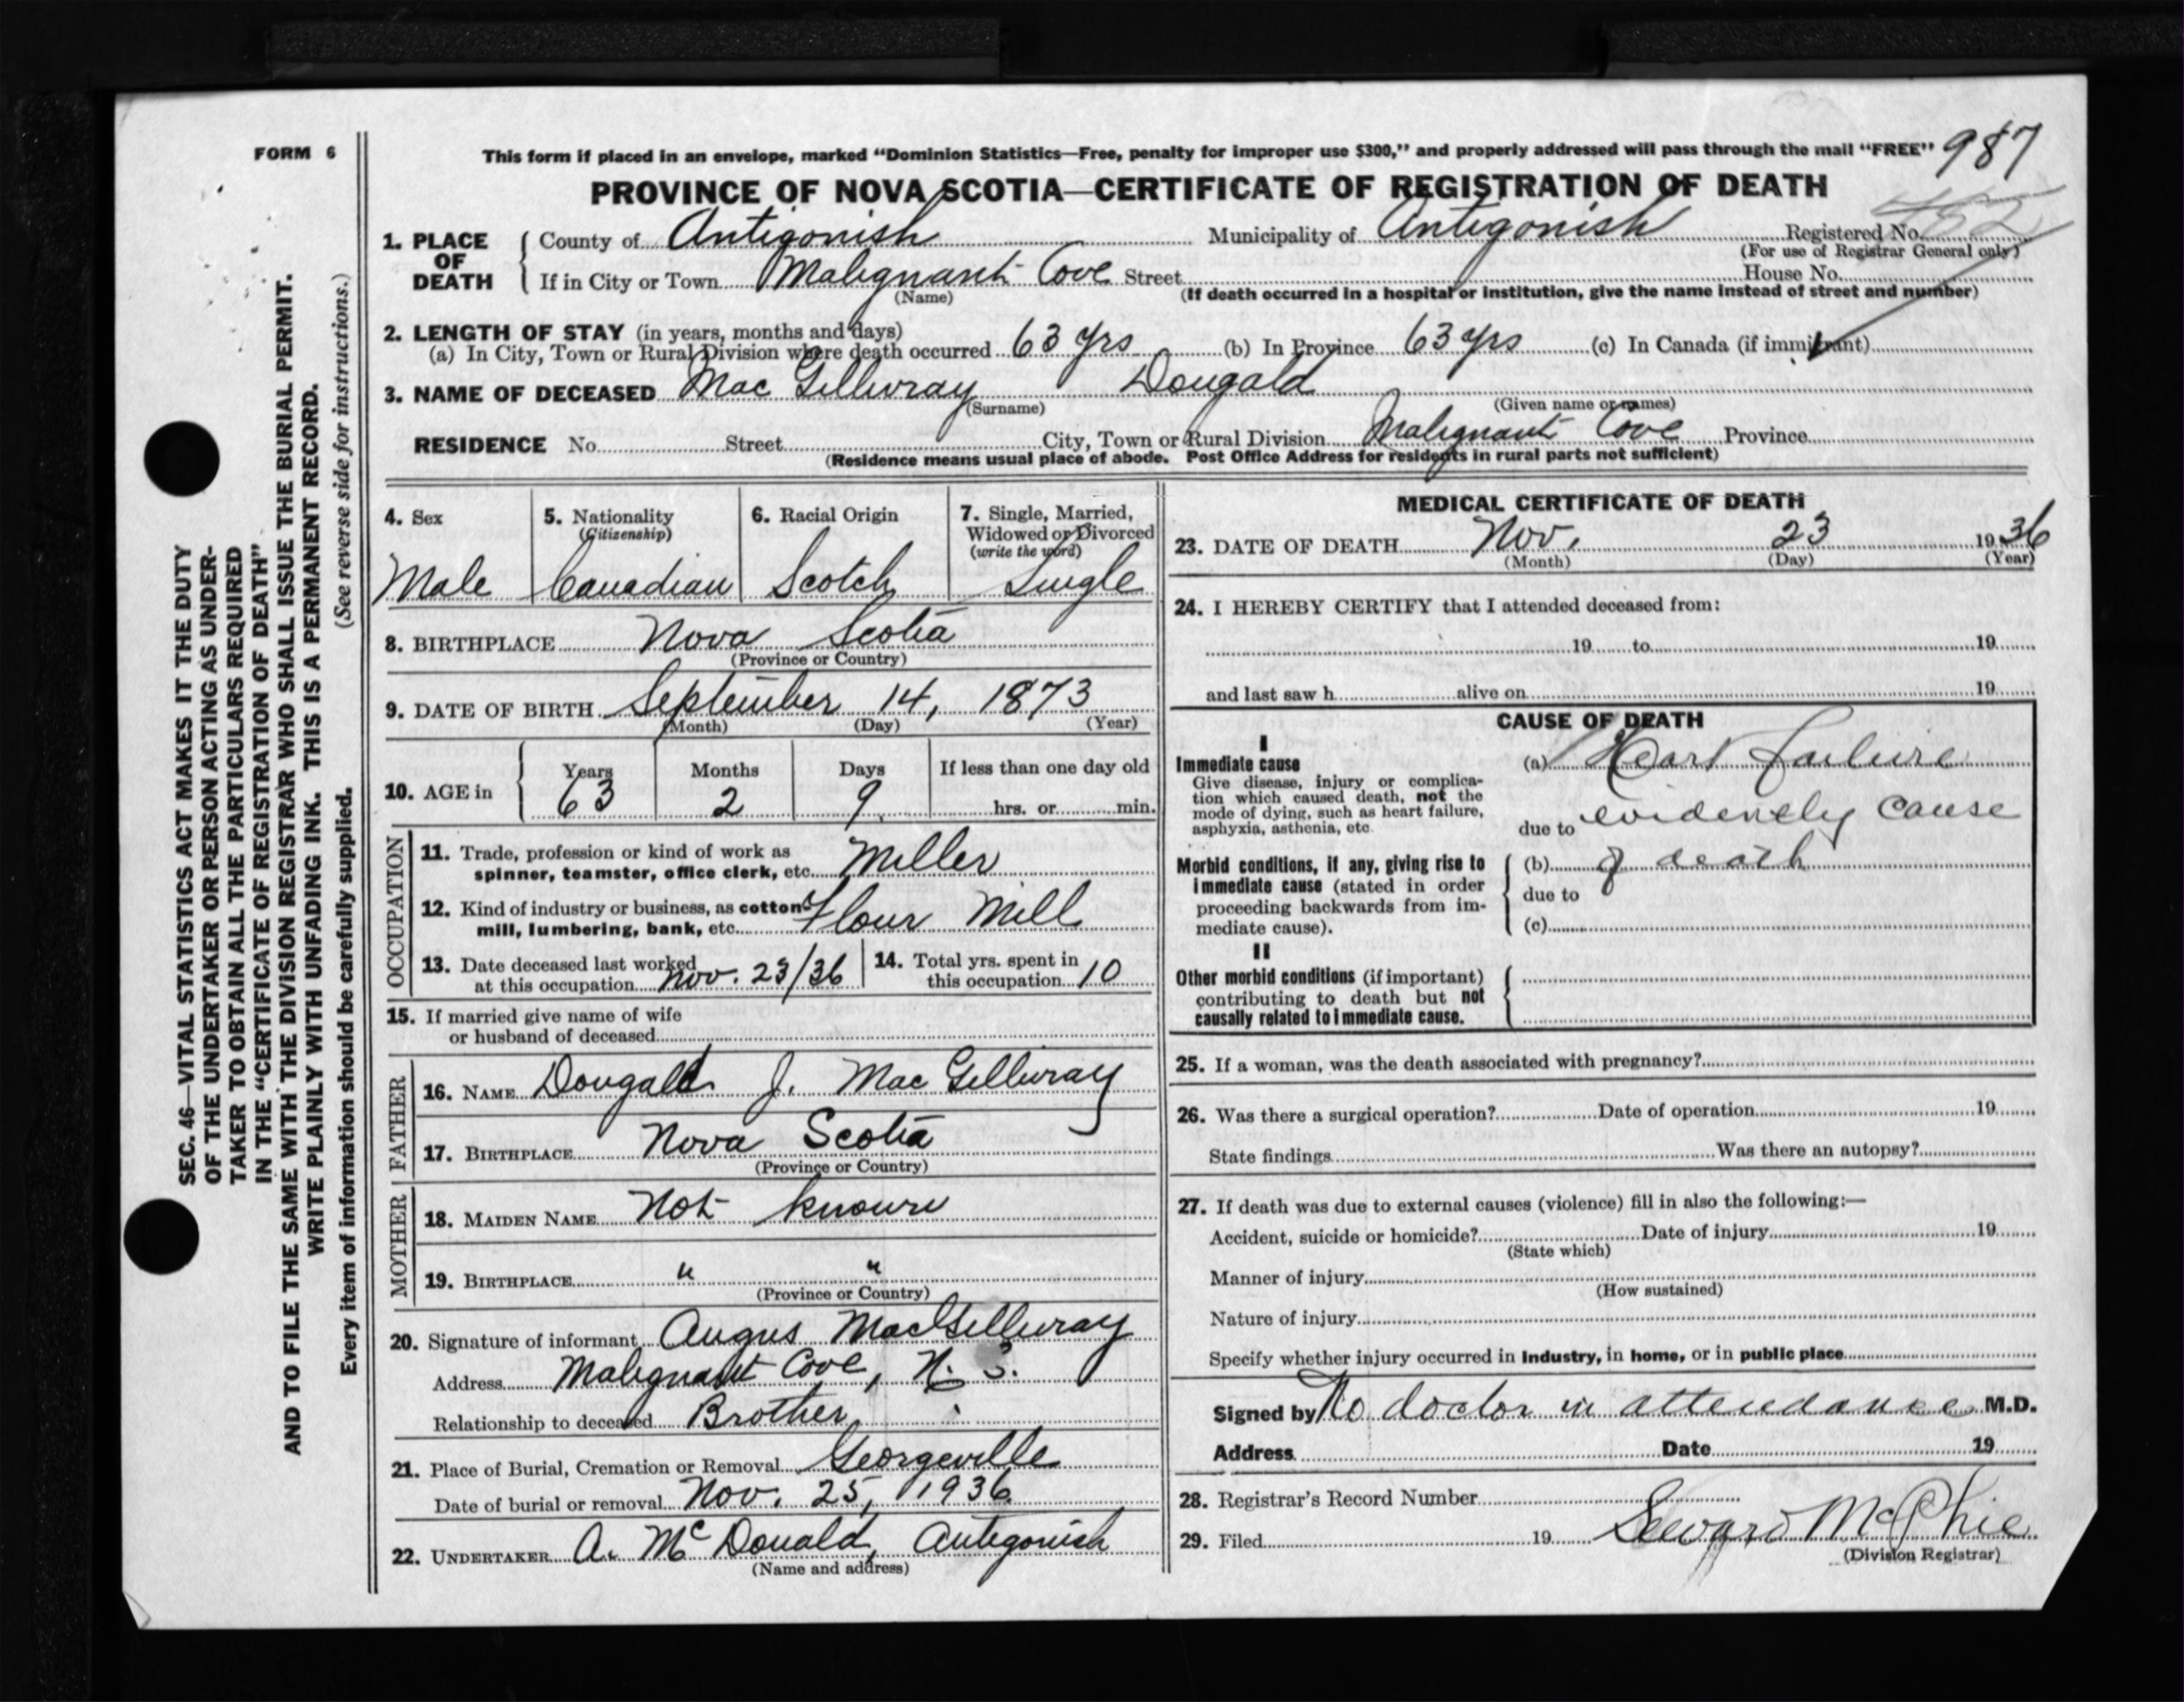 FORM 6
SEC. 46—VITAL STATISTICS ACT MAKES IT THE DUTY
OF THE UNDERTAKER OR PERSON ACTING AS UNDER-
TAKER TO OBTAIN ALL THE PARTICULARS REQUIRED
IN THE "CERTIFICATE OF REGISTRATION OF DEATH"
AND TO FILE THE SAME WITH THE DIVISION REGISTRAR WHO SHALL ISSUE THE BURIAL PERMIT.
WRITE PLAINLY WITH UNFADING INK. THIS IS A PERMANENT RECORD.
Every item of information should be carefully supplied. (See reverse side for instructions.)
This form if placed in an envelope, marked "Dominion Statistics—Free, penalty for improper use $300," and properly addressed will pass through the mail "FREE" 987
PROVINCE OF NOVA SCOTIA—CERTIFICATE OF REGISTRATION OF DEATH
1. PLACE OF DEATH County of Antigonish Municipality of Antigonish Registered No.
(For use of Registrar General only)
If in City or Town Malignant Cove Street House No.
(Name) (If death occurred in a hospital or institution, give the name instead of street and number)
2. LENGTH OF STAY (in years, months and days)
(a) In City, Town or Rural Division where death occurred 63 yrs (b) In Province 63 yrs (c) In Canada (if immigrant)
3. NAME OF DECEASED Mac Gillivray Dougald
(Surname) (Given name or names)
RESIDENCE No. Street City, Town or Rural Division Malignant Cove Province
(Residence means usual place of abode. Post Office Address for residents in rural parts not sufficient)
4. Sex 5. Nationality (Citizenship) 6. Racial Origin 7. Single, Married, Widowed or Divorced (write the word)
Male Canadian Scotch Single
8. BIRTHPLACE Nova Scotia
(Province or Country)
9. DATE OF BIRTH September 14, 1873
(Month) (Day) (Year)
10. AGE in Years Months Days If less than one day old
63 2 9 hrs. or min.
OCCUPATION
11. Trade, profession or kind of work as
spinner, teamster, office clerk, etc. Miller
12. Kind of industry or business, as cotton
mill, lumbering, bank, etc. Flour Mill
13. Date deceased last worked
at this occupation Nov. 23/36
14. Total yrs. spent in
this occupation 10
15. If married give name of wife
or husband of deceased
FATHER
16. NAME Dougald J. Mac Gillivray
17. BIRTHPLACE Nova Scotia
(Province or Country)
MOTHER
18. MAIDEN NAME Not known
19. BIRTHPLACE " "
(Province or Country)
20. Signature of informant Angus MacGillivray
Address Malignant Cove, N. S.
Relationship to deceased Brother
21. Place of Burial, Cremation or Removal Georgeville
Date of burial or removal Nov. 25, 1936
22. UNDERTAKER A. McDonald, Antigonish
(Name and address)
MEDICAL CERTIFICATE OF DEATH
23. DATE OF DEATH Nov. 23 1936
(Month) (Day) (Year)
24. I HEREBY CERTIFY that I attended deceased from:
19 to 19
and last saw h alive on 19
CAUSE OF DEATH
I
Immediate cause (a) Heart Failure
Give disease, injury or complica-
tion which caused death, not the
mode of dying, such as heart failure,
asphyxia, asthenia, etc.
due to evidently cause
Morbid conditions, if any, giving rise to
immediate cause (stated in order
proceeding backwards from im-
mediate cause).
(b) of death
due to
(c)
II
Other morbid conditions (if important)
contributing to death but not
causally related to immediate cause.
25. If a woman, was the death associated with pregnancy?
26. Was there a surgical operation? Date of operation 19
State findings Was there an autopsy?
27. If death was due to external causes (violence) fill in also the following:—
Accident, suicide or homicide? Date of injury 19
(State which)
Manner of injury
(How sustained)
Nature of injury
Specify whether injury occurred in industry, in home, or in public place
Signed by No doctor in attendance M.D.
Address Date 19
28. Registrar's Record Number
29. Filed 19 Seward McPhie
(Division Registrar)